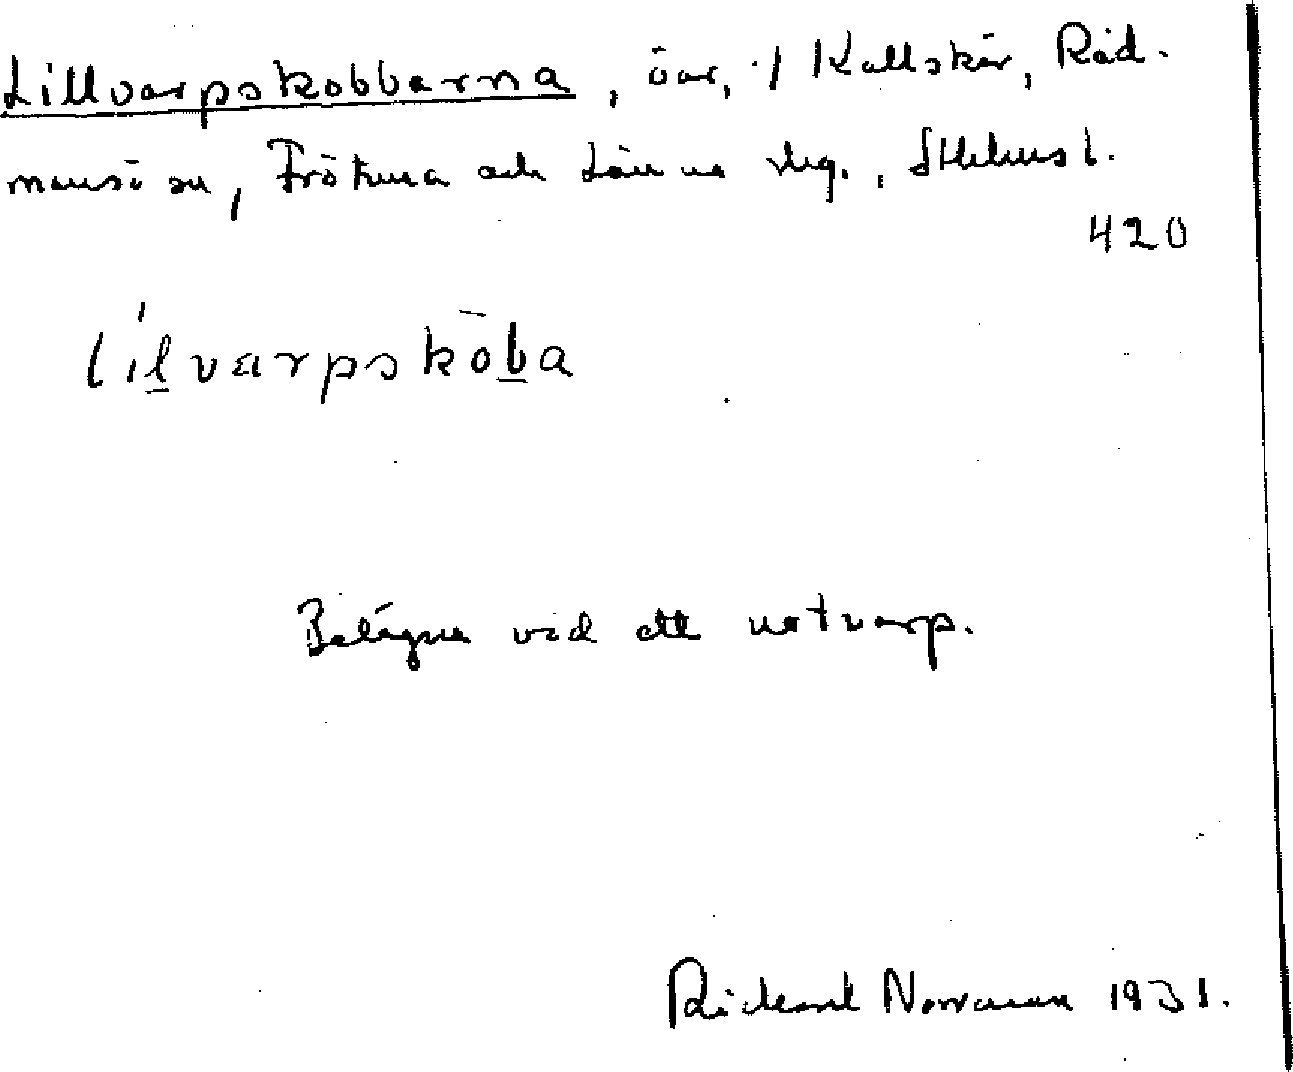 Lillvarpskobbarna, öar, ·/ Kallskär, Råd-
mansö sn, Frötuna och Länna skg., Sthlms l.
420
lílvarpskōba
Belägna vid ett notvarp.
Rickard Norrman 1931.